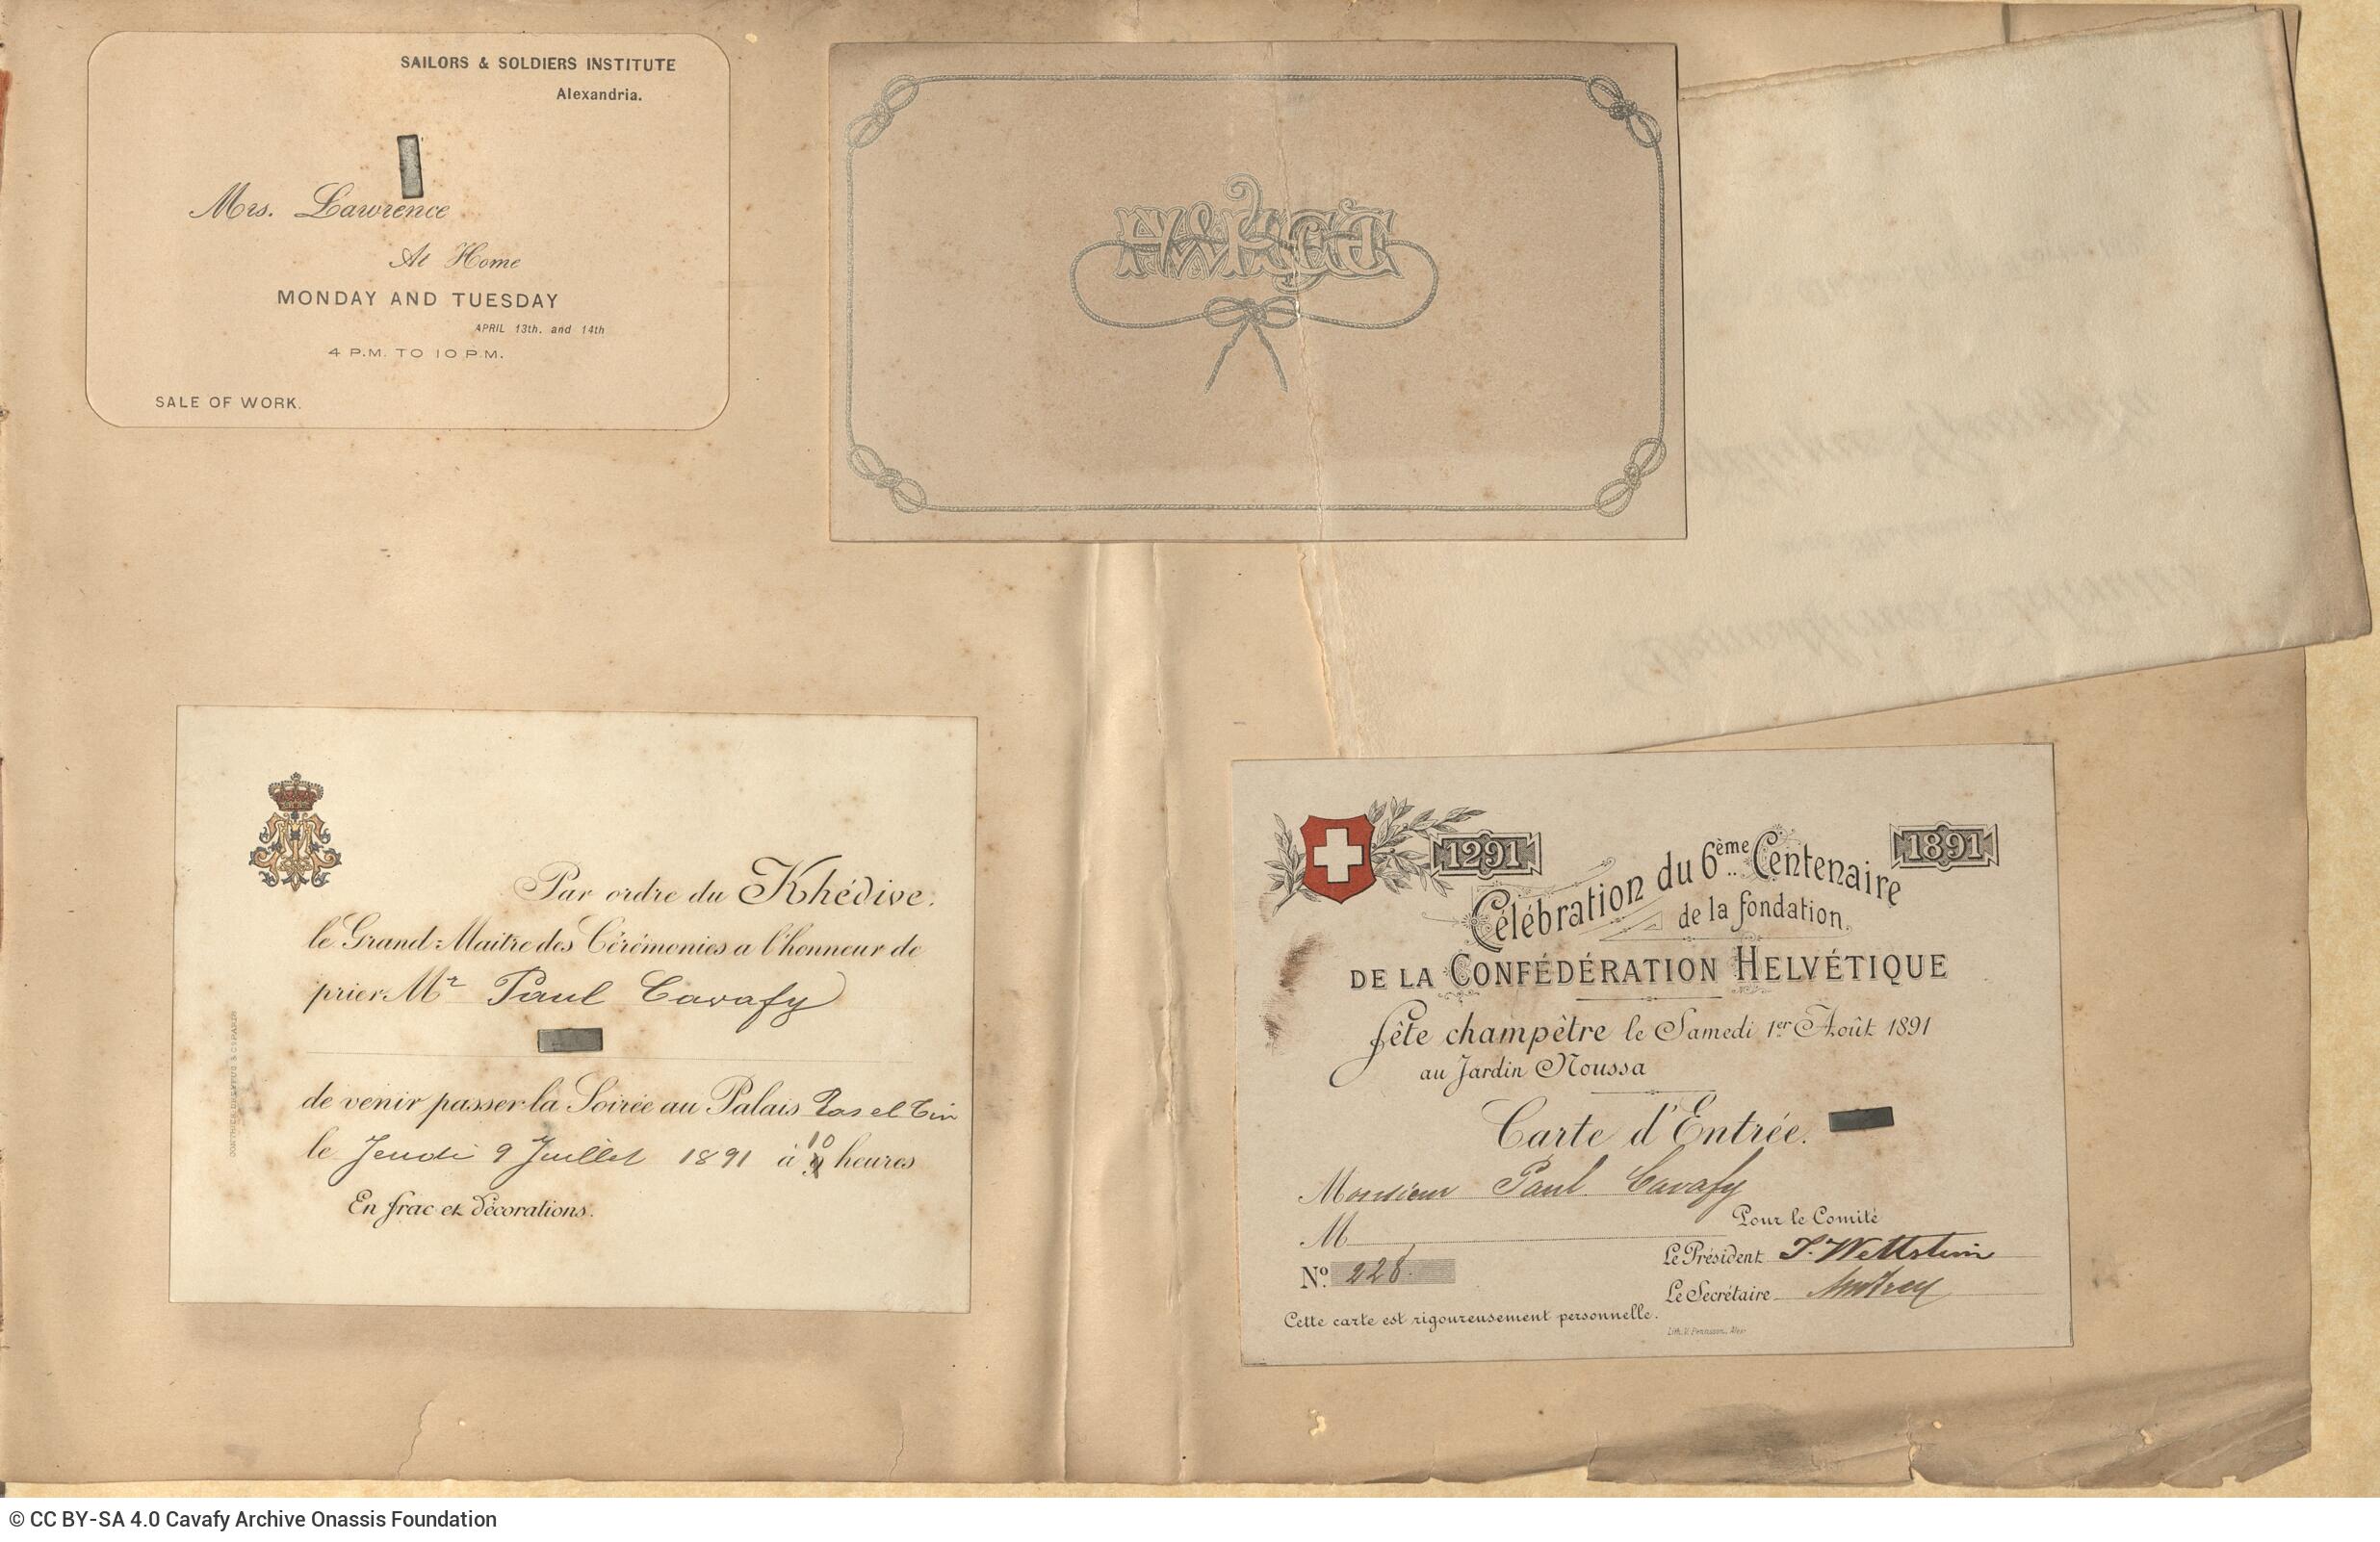 SAILORS & SOLDIERS INSTITUTE
Alexandria.
Mrs. Lawrence
At Home
MONDAY AND TUESDAY
APRIL 13th. and 14th
4 P.M. TO 10 P.M.
SALE OF WORK.
Par ordre du Khédive.
le Grand-Maitre des Cérémonies a l'honneur de
prier Mr Paul Cavafy
de venir passer la Soirée au Palais Ras el Tin
le Jeudi 9 Juillet 1891 à 10 heures
En frac et décorations.
1291 1891
Célébration du 6ème Centenaire
de la fondation
DE LA CONFÉDÉRATION HELVÉTIQUE
fête champêtre le Samedi 1er Août 1891
au Jardin Noussa
Carte d'Entrée.
Monsieur Paul Cavafy
M
Pour le Comité
Le Président J. Wettstein
No. 228
Le Secrétaire
Cette carte est rigoureusement personnelle.
© CC BY-SA 4.0 Cavafy Archive Onassis Foundation